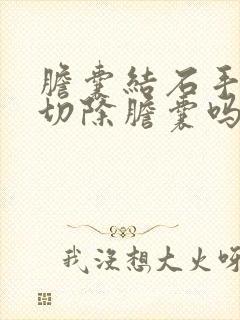 膽囊結石手
切除膽囊吗
我沒想大火呀